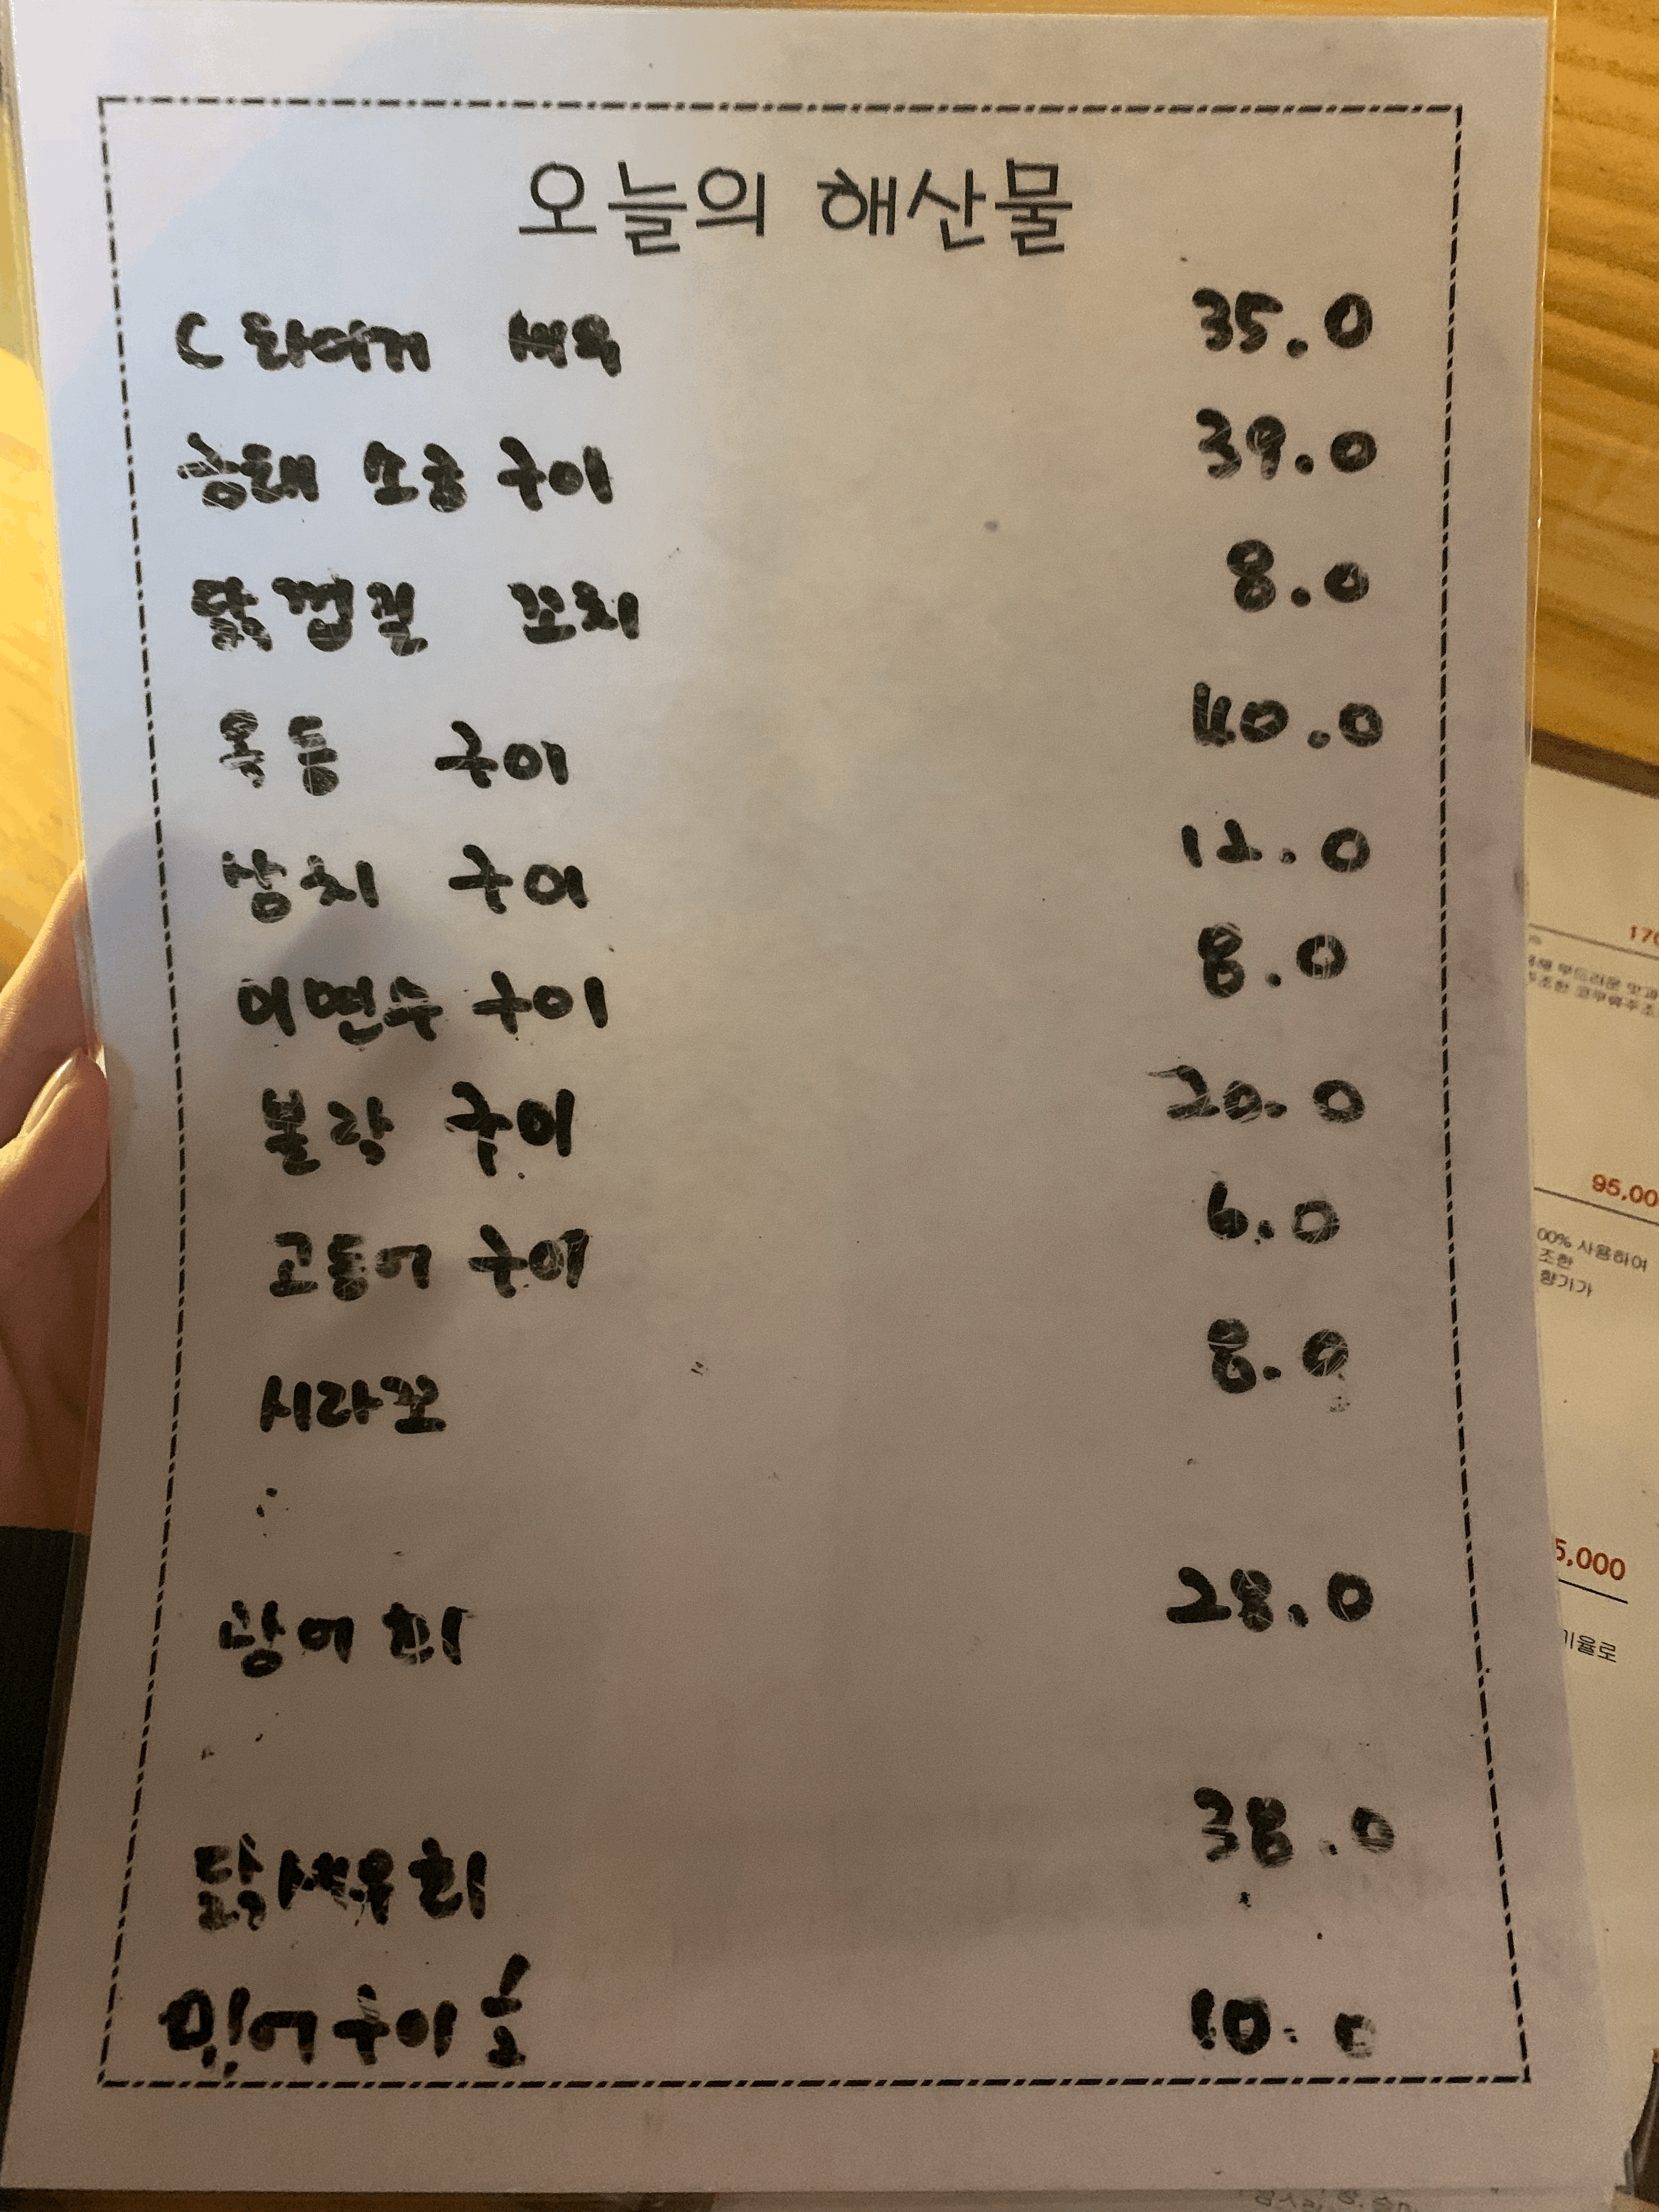 오늘의 해산물
C 타이거 새우 35.0
금태 소금 구이 39.0
닭껍질 꼬치 8.0
옥돔 구이 40.0
삼치 구이 12.0
이면수 구이 8.0
볼락 구이 20.0
고등어 구이 6.0
시라꼬 8.0
광어 회 28.0
닭새우 회 38.0
구이 10.0
170
95,00
00% 사용하여
조한
향기가
5,000